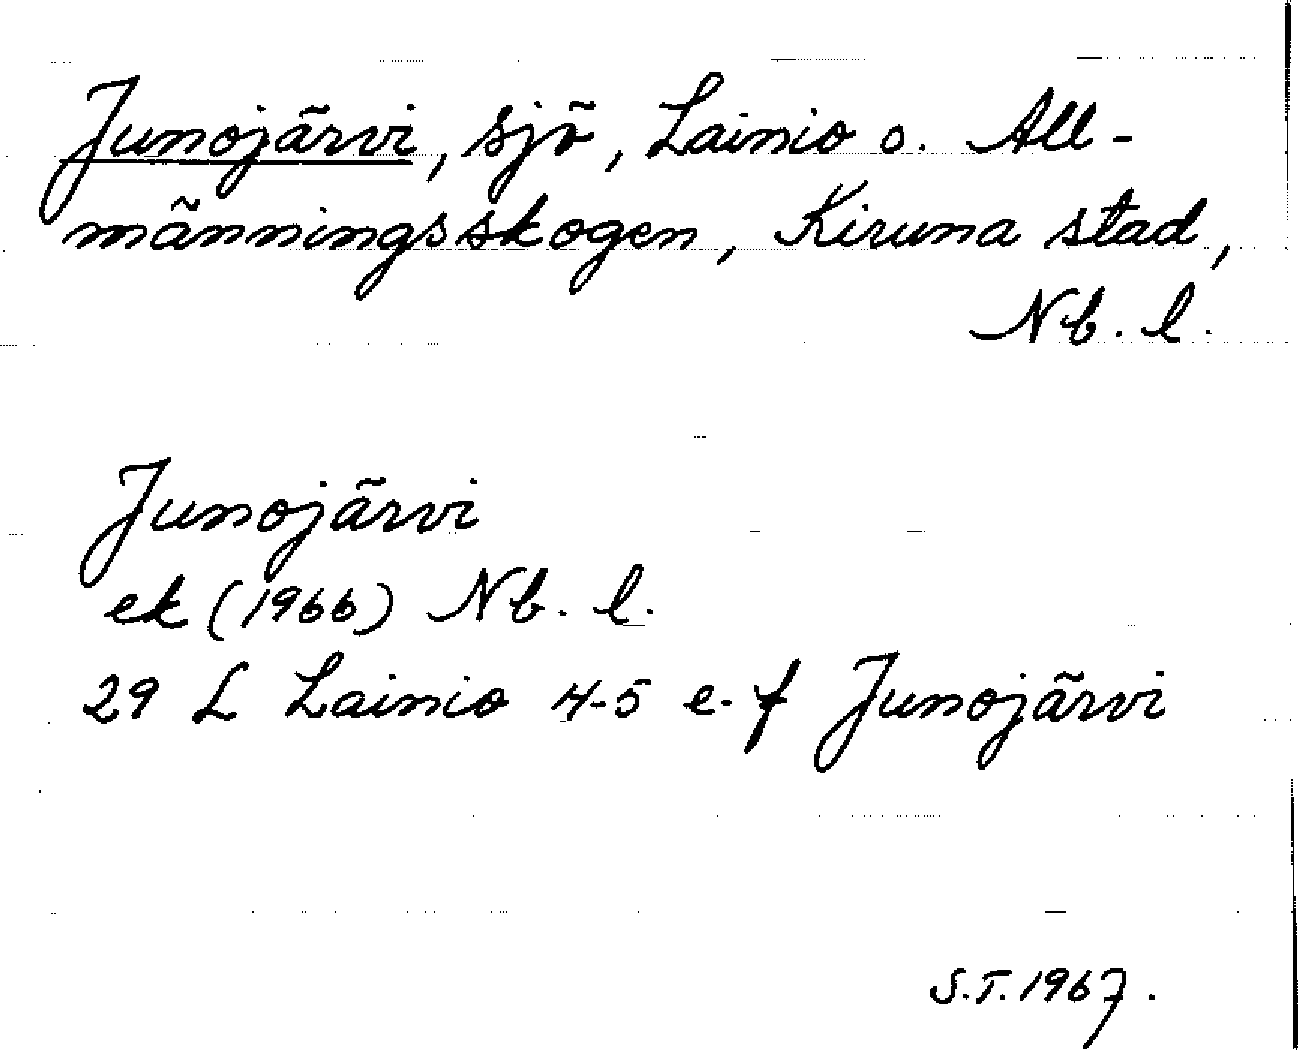 Junojärvi, sjö, Lainio o. All-
männingsskogen, Kiruna stad,
Nb. l.
Junojärvi
ek (1966) Nb. l.
29 L Lainio 4-5 e-f Junojärvi
S.T. 1967.